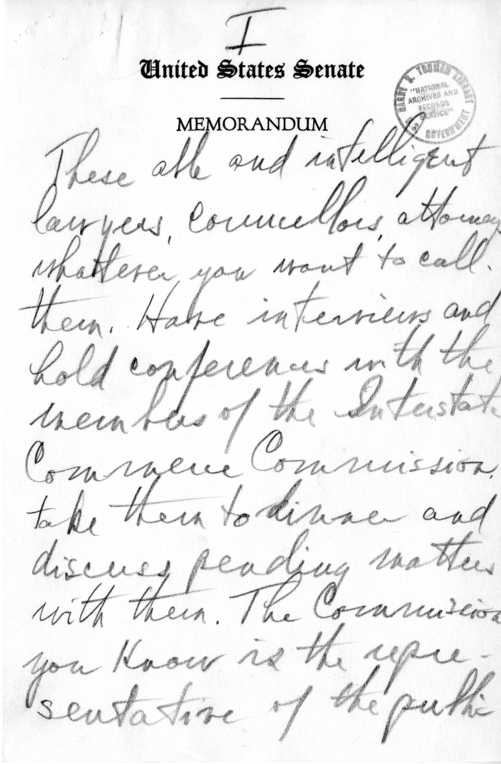 I
United States Senate
MEMORANDUM
HARRY S. TRUMAN LIBRARY
"NATIONAL
ARCHIVES AND
RECORDS
SERVICE"
GOVERNMENT
These able and intelligent
lawyers, councellors, attorneys
whatever you want to call
them. Have interviews and
hold conferences with the
members of the Interstate
Commerce Commission,
take them to dinner and
discuss pending matters
with them. The Commission
you know is the repre-
sentative of the public